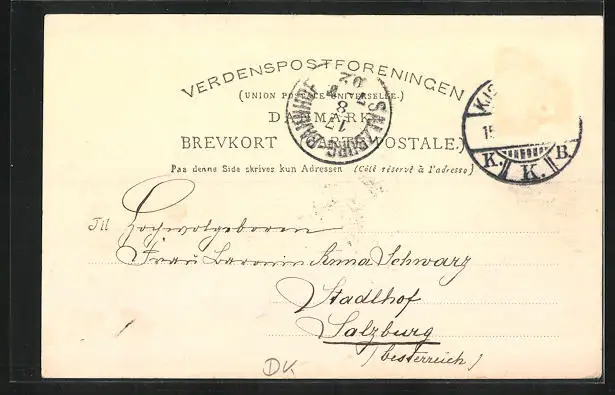 VERDENSPOSTFORENINGEN
(UNION POSTALE UNIVERSELLE.)
DANMARK
BREVKORT (CARTE POSTALE.)
Paa denne Side skrives kun Adressen (Côté réservé à l'adresse)
SALZBURG BAHNHOF
17 8
K.
K.
B.
15
Til Hochwolgeboren
Frau Baronin Anna Schwarz
Stadlhof
Salzburg
(Oesterreich)
DK